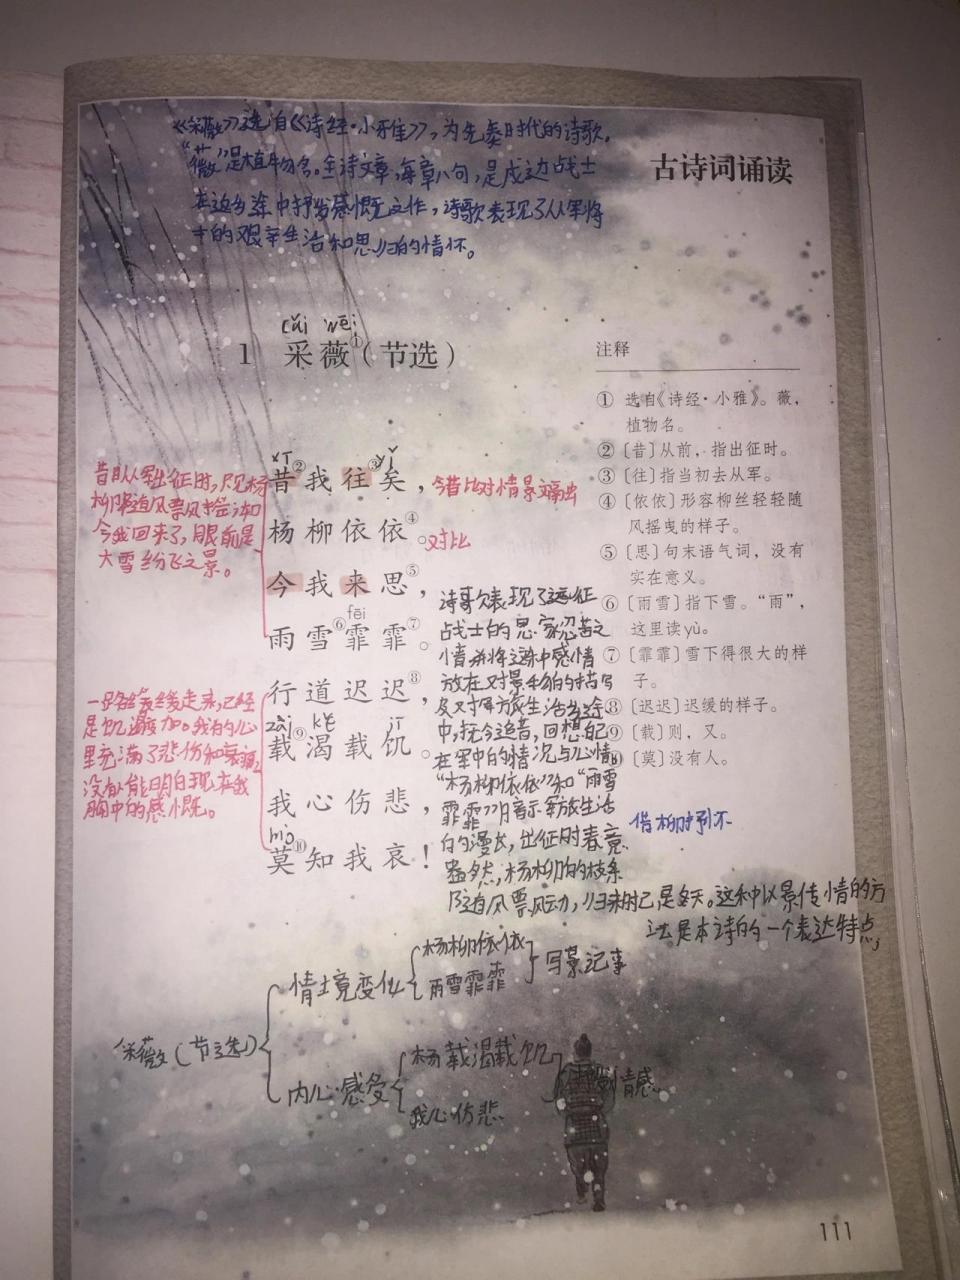 《采薇》选自《诗经·小雅》，为先秦时代的诗歌。
"薇"是植物名。全诗六章，每章八句，是戍边战士
在返乡途中抒发感慨之作，诗歌表现了从军将
士的艰辛生活和思归的情怀。
古诗词诵读
cǎi wēi
1 采薇①（节选）
昔②我往③矣，
xī
yǐ
杨柳依依④。
今我来思⑤，
fēi
雨雪⑥霏霏⑦。
行道迟迟⑧，
zài kě jī
载⑨渴载饥。
我心伤悲，
mò
莫⑩知我哀！
今昔对比 情景交融
对比
昔日从军出征时，只见杨
柳随风飘
今我回来了，眼前是
大雪纷飞之景。
一路缓缓走来，已经
是饥渴交加。我的心
里充满了悲伤和哀痛，
没有人能明白现在我
胸中的感慨。
注释
① 选自《诗经·小雅》。薇，
植物名。
②〔昔〕从前，指出征时。
③〔往〕指当初去从军。
④〔依依〕形容柳丝轻轻随
风摇曳的样子。
⑤〔思〕句末语气词，没有
实在意义。
⑥〔雨雪〕指下雪。“雨”，
这里读yù。
⑦〔霏霏〕雪下得很大的样
子。
⑧〔迟迟〕迟缓的样子。
⑨〔载〕则，又。
〔莫〕没有人。
诗歌表现了远征
战士的思家忍苦之
情并将这种感情
放在对景物的描写
及对军旅生活
中，抚今追昔，回想自己
在军中的情况与心情。
"杨柳依依"和"雨雪
霏霏"暗示军旅生活
的漫长，出征时春意
盎然，杨柳的枝条
随风飘动，归来时已是冬天。这种以景传情的方
法是本诗的一个表达特点，
借柳抒怀
采薇(节选)
情境变化
杨柳依依
雨雪霏霏
写景记事
内心感受
杨载渴载饥
我心伤悲
情感
111